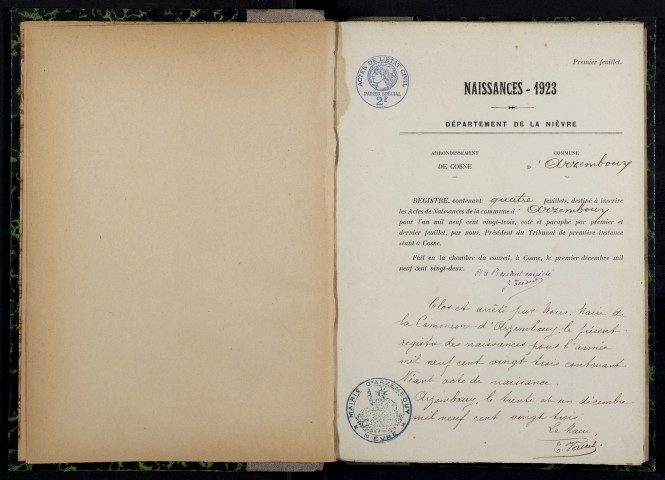 Premier feuillet.
ACTES DE L'ETAT CIVIL
PAPIER SPECIAL
2c
NAISSANCES - 1923
DÉPARTEMENT DE LA NIÈVRE
ARRONDISSEMENT
DE COSNE
COMMUNE
d'Arzembouy
REGISTRE, contenant quatre feuillets, destiné à inscrire
les Actes de Naissances de la commune d'Arzembouy
pour l'an mil neuf cent vingt-trois, coté et paraphé par premier et
dernier feuillet, par nous, Président du Tribunal de première instance
séant à Cosne.
Fait en la chambre du conseil, à Cosne, le premier décembre mil
neuf cent vingt-deux.
Clos et arrêté par Nous, Maire de
la Commune d'Arzembouy, le présent
registre des naissances pour l'année
mil neuf cent vingt trois contenant
Néant acte de naissance.
Arzembouy, le trente et un décembre
mil neuf cent vingt trois.
Le Maire,
MAIRIE D'ARZEMBOUY
NIEVRE